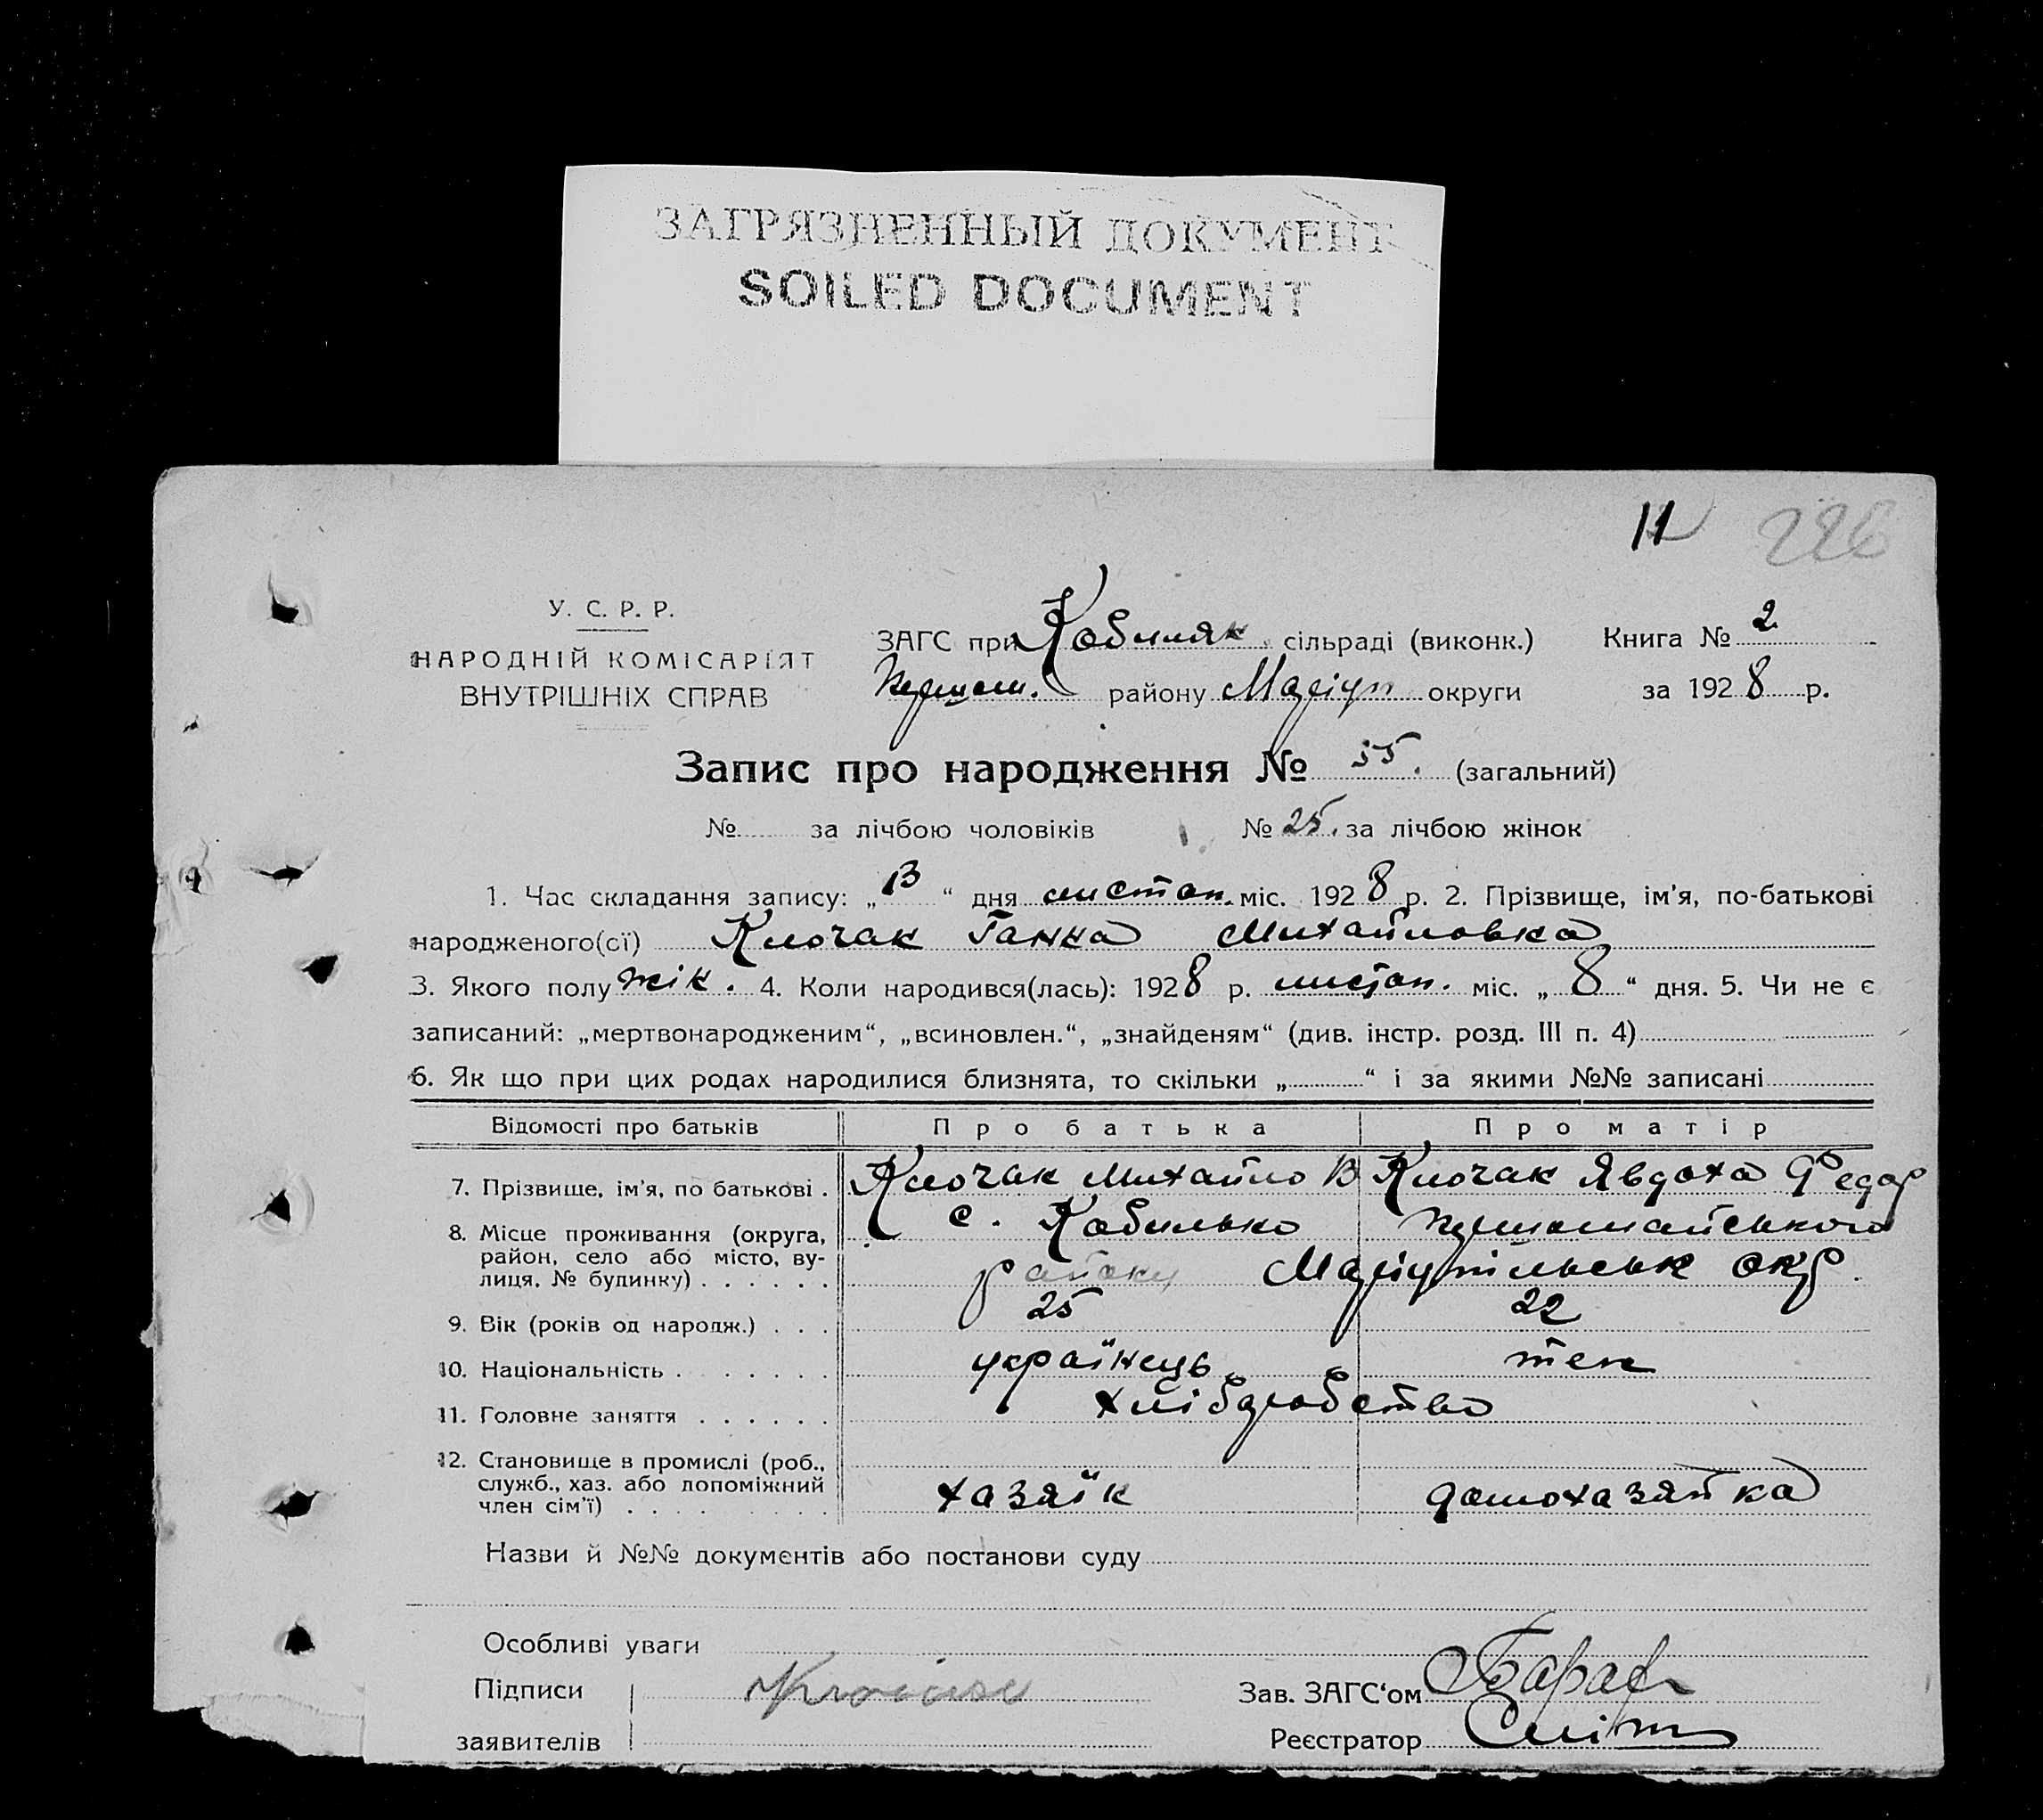 ЗАГРЯЗНЕННЫЙ ДОКУМЕНТ
SOILED DOCUMENT
11 226
У. С. Р. Р.
НАРОДНІЙ КОМІСАРІЯТ
ВНУТРІШНІХ СПРАВ
ЗАГС при Кобиляк. сільраді (виконк.) Книга № 2
району Маріуп округи за 1928 р.
Запис про народження № 55. (загальний)
№ за лічбою чоловіків № 25. за лічбою жінок
1. Час складання запису: „13“ дня листоп. міс. 1928 р. 2. Прізвище, ім'я, по-батькові
народженого(ої) Клочак Ганна Михайловна
3. Якого полу жін. 4. Коли народився(лась): 1928 р. листоп. міс. „8“ дня. 5. Чи не є
записаний: „мертвонародженим“, „всиновлен.“, „знайденям“ (див. інстр. розд. III п. 4)
6. Як що при цих родах народилися близнята, то скільки „ “ і за якими №№ записані
Відомості про батьків Про батька Про матір
7. Прізвище, ім'я, по батькові . Клочак Михайло В Клочак Явдоха Федор
8. Місце проживання (округа, с. Кобильно
район, село або місто, ву-
лиця, № будинку) . . . . . . району Маріупільськ окр.
9. Вік (років од народж.) . . . 25 22
10. Національність . . . . . . . українець теж
11. Головне заняття . . . . . . хліборобство
12. Становище в промислі (роб.,
служб., хаз. або допоміжний
член сім'ї) . . . . хазяїн домохазяйка
Назви й №№ документів або постанови суду
Особливі уваги
Підписи Зав. ЗАГС‘ом
заявителів Реєстратор